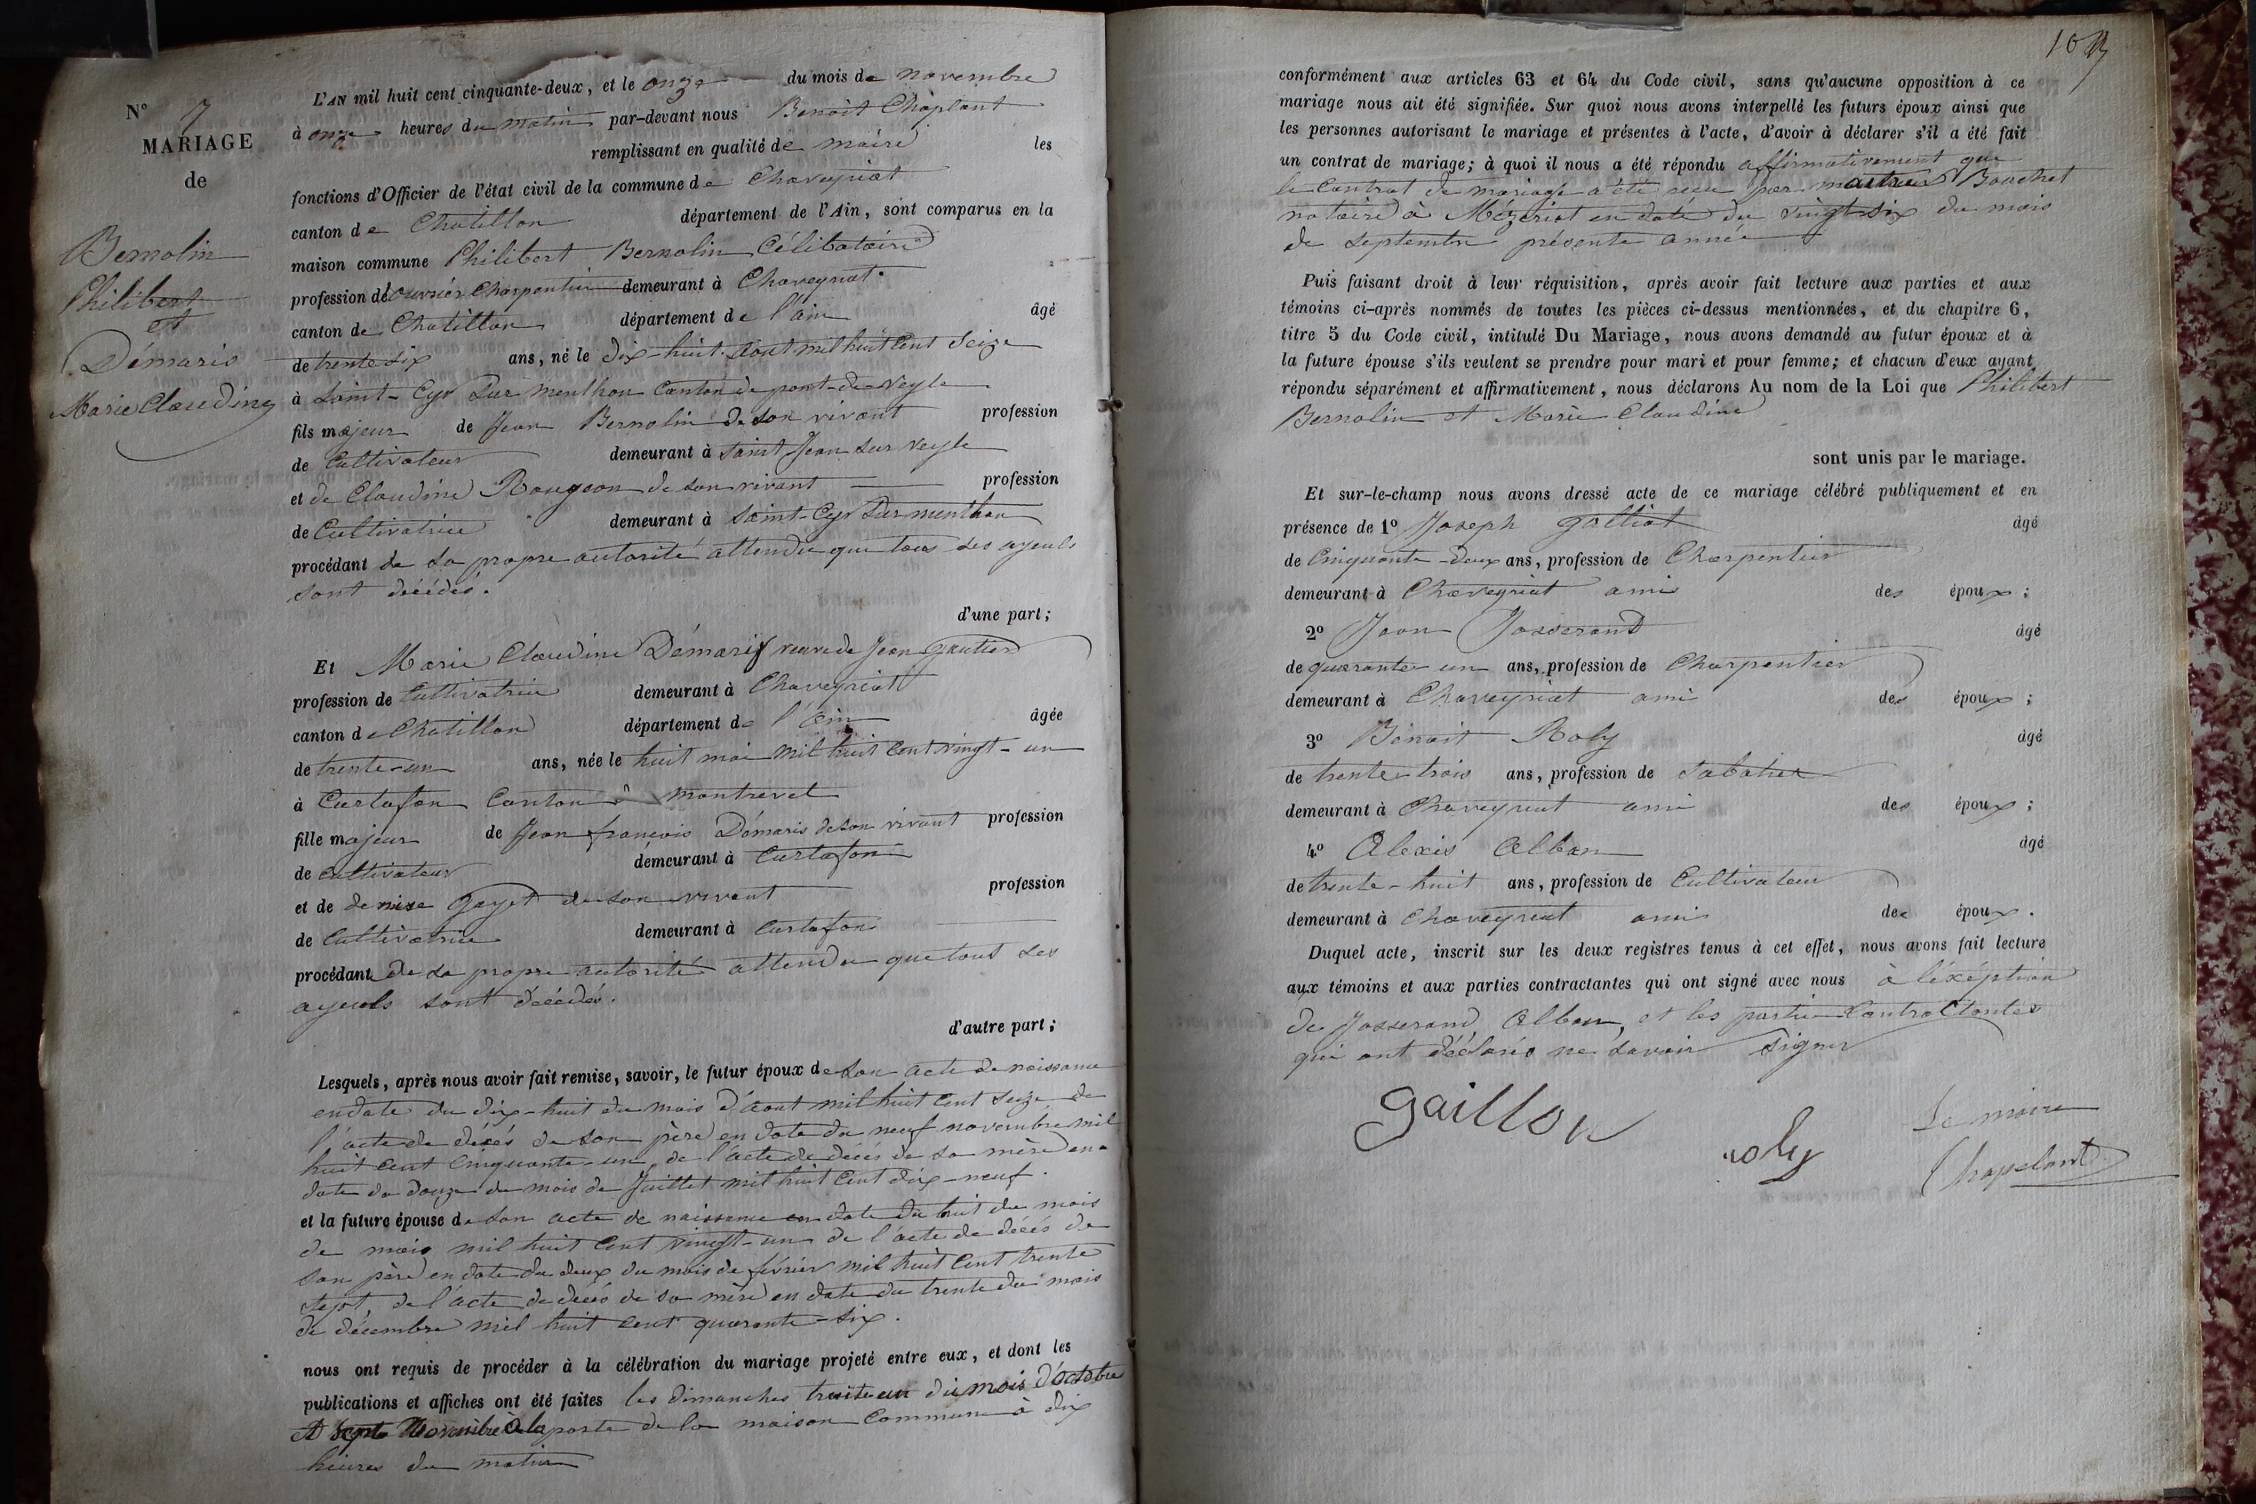 N° 7
MARIAGE
de
Bernolin
Philibert
et
Démaris
Marie Claudine
L'AN mil huit cent cinquante-deux, et le onze du mois de novembre
à onze heures du matin par-devant nous Benoit Chaplant
remplissant en qualité de maire les
fonctions d'Officier de l'état civil de la commune de Chaveyriat
canton de Chatillon département de l'Ain, sont comparus en la
maison commune Philibert Bernolin Célibataire
profession d'ouvrier Charpentier demeurant à Chaveyriat
canton de Chatillon département de l'ain âgé
de trente six ans, né le dix-huit aout mil huit cent Seize
à Saint-Cyr sur menthon Canton de pont-de-veyle
fils majeur de Jean Bernolin de son vivant profession
de Cultivateur demeurant à Saint Jean sur veyle
et de Claudine Rougeon de son vivant profession
de Cultivatrice demeurant à Saint-Cyr sur menthon
procédant de sa propre autorité attendu que tous ses ayeuls
sont décédés.
d'une part;
Et Marie Claudine Démaris veuve de Jean gautier
profession de Cultivatrice demeurant à Chaveyriat
canton de Chatillon département de l'ain âgée
de trente-un ans, née le huit mai mil huit cent vingt-un
à Curtafon Canton de montrevel
fille majeur de Jean françois Démaris de son vivant profession
de cultivateur demeurant à Curtafon
et de denise gayet de son vivant profession
de Cultivatrice demeurant à Curtafon
procédant de sa propre autorité attendu que tous ses
ayeuls sont décédés.
d'autre part;
Lesquels, après nous avoir fait remise, savoir, le futur époux de son acte de naissance
en date du dix-huit du mois d'aout mil huit cent seize de
l'acte de décés de son père en date du neuf novembre mil
huit cent cinquante-un, de l'acte de décés de sa mère en
date du douze du mois de Juillet mil huit cent dix-neuf.
et la future épouse de son acte de naissance en date du huit du mois
de mai mil huit cent vingt-un de l'acte de décés de
son père en date du deux du mois de février mil huit cent trente
sept, de l'acte de décés de sa mère en date du trente du mois
de décembre mil huit cent quarante-six.
nous ont requis de procéder à la célébration du mariage projeté entre eux, et dont les
publications et affiches ont été faites les dimanches trente un du mois d'octobre
et sept Novembre à la porte de la maison Commune à dix
heures du matin
conformément aux articles 63 et 64 du Code civil, sans qu'aucune opposition à ce
mariage nous ait été signifiée. Sur quoi nous avons interpellé les futurs époux ainsi que
les personnes autorisant le mariage et présentes à l'acte, d'avoir à déclarer s'il a été fait
un contrat de mariage; à quoi il nous a été répondu affirmativement que
le Contrat de mariage a été reçu par maitre Bouchet
notaire à Mézériat en date du vingt six du mois
de septembre présente année
Puis faisant droit à leur réquisition, après avoir fait lecture aux parties et aux
témoins ci-après nommés de toutes les pièces ci-dessus mentionnées, et du chapitre 6,
titre 5 du Code civil, intitulé Du Mariage, nous avons demandé au futur époux et à
la future épouse s'ils veulent se prendre pour mari et pour femme; et chacun d'eux ayant
répondu séparément et affirmativement, nous déclarons Au nom de la Loi que Philibert
Bernolin et Marie Claudine
sont unis par le mariage.
Et sur-le-champ nous avons dressé acte de ce mariage célébré publiquement et en
présence de 1° Joseph âgé
de Cinquante-deux ans, profession de Charpentier
demeurant à Chaveyriat ami des époux;
2° Jean Josserand âgé
de quarante un ans, profession de Charpentier
demeurant à Chaveyriat ami des époux;
3° Benoit Roly âgé
de trente-trois ans, profession de Sabotier
demeurant à Chaveyriat ami des époux;
4° Alexis Alban âgé
de trente-huit ans, profession de Cultivateur
demeurant à Chaveyriat ami des époux.
Duquel acte, inscrit sur les deux registres tenus à cet effet, nous avons fait lecture
aux témoins et aux parties contractantes qui ont signé avec nous à l'éxéption
de Josserand, Alban, et les partie Contractantes
qui ont déclarés ne savoir signer
gaillon
roly
Le maire
Chapelant